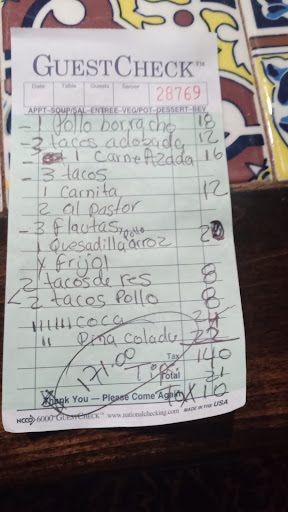 GUESTCHECK™
Date Table Guests Server 28769
APPT-SOUP/SAL-ENTREE-VEG/POT-DESSERT-BEV
- 1 pollo borracho 18
- 3 tacos adobada 12
- 1 Carne Azada 16
- 3 tacos
1 Carnita 12
2 al pastor
- 3 flautas pollo
1 Quesadilla arroz 20
y frijol
2 tacos de res 8
2 tacos Pollo 8
IIIIII Coca 24
II Pina colada 22
Tax 140
171.00 Tip Total 31
Thank You — Please Come Again 10
NCCO 6000 GUESTCHECK™ www.nationalchecking.com MADE IN THE USA